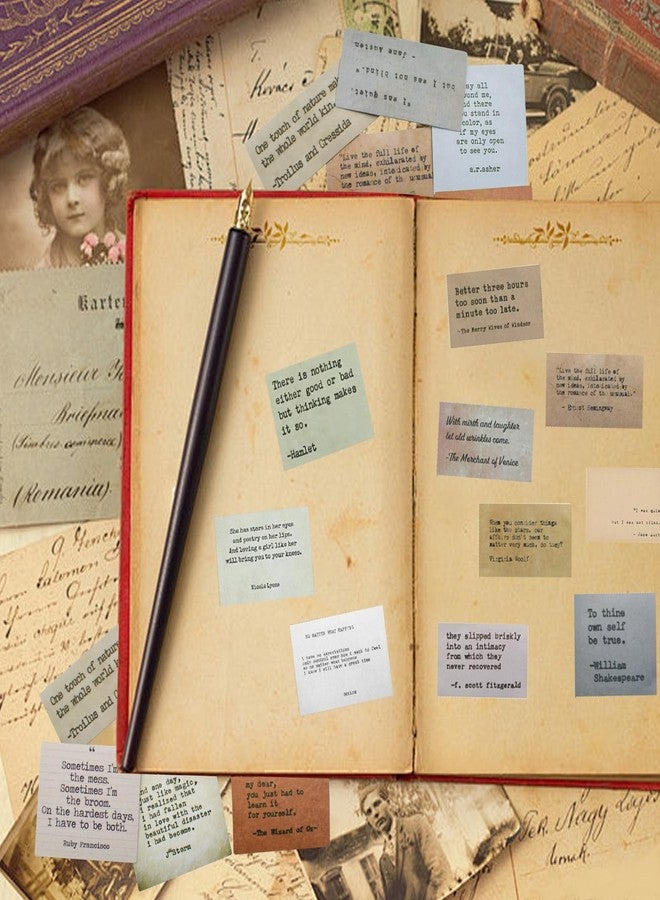 "I was quiet,
but I was not blind."
- Jane Austen
One touch of nature ma
the whole world kin.
-Troilus and Cressida
"Live the full life of
the mind, exhilarated by
new ideas, intoxicated by
the romance of the unusual
ay all
ound me,
nd there
you stand in
color, as
if my eyes
are only open
to see you.
a.r.asher
Kovács
Karte
Monsieur
(Romania).
There is nothing
either good or bad
but thinking makes
it so.
-Hamlet
She has stars in her eyes
and poetry on her lips.
And loving a girl like her
will bring you to your knees.
Nicole Lyons
NO MATTER WHAT HAPPENS
I have no expectations
so no matter what happens
I know I will have a great time
Better three hours
too soon than a
minute too late.
-The Merry Wives of Windsor
"Live the full life of
the mind, exhilarated by
new ideas, intoxicated by
the romance of the unusual."
- Ernest Hemingway
With mirth and laughter
let old wrinkles come.
-The Merchant of Venice
When you consider things
like the stars, our
affairs don't seem to
matter very much, do they?
Virginia Woolf
"I was quie
but I was not blin
- Jane Aust
they slipped briskly
into an intimacy
from which they
never recovered
-f. scott fitzgerald
To thine
own self
be true.
-William
Shakespeare
One touch of natur
the whole world k
-Troilus and C
“
Sometimes I'm
the mess.
Sometimes I'm
the broom.
On the hardest days,
I have to be both.
Ruby Francisco
nd one day,
just like magic,
I realized that
I had fallen
in love with the
beautiful disaster
I had become.
JmStorm
my dear,
you just had to
learn it
for yourself.
-The Wizard of Oz-
Nagy Lajos